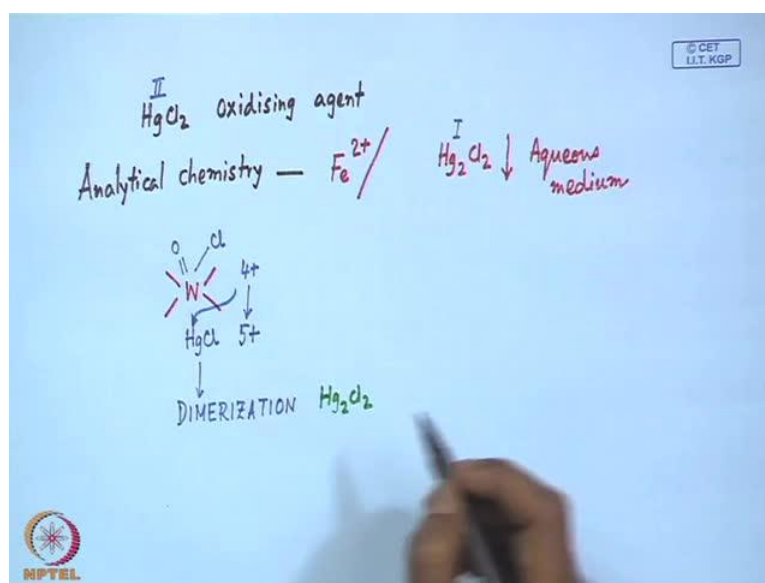 © CET
I.I.T. KGP
II
HgCl2 oxidising agent
I
Analytical chemistry — Fe2+/ Hg2Cl2 ↓ Aqueous
medium
O Cl
W 4+
HgCl 5+
DIMERIZATION Hg2Cl2
NPTEL